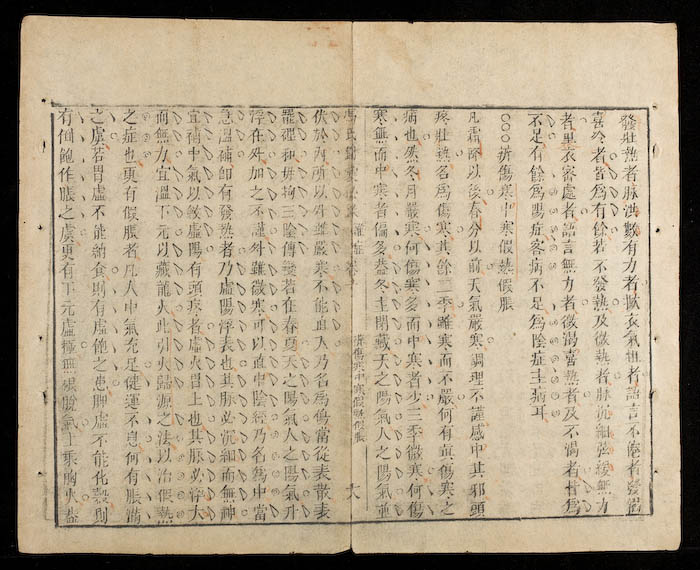 發壯熱者脉洪數有力者揿衣氣粗者語言不倦者發渴
喜冷者皆爲有餘若不發熱及微熱者脉沉細弦緩無力
者裏衣密處者語言無力者微渴喜熱者及不渴者皆爲
不足有餘爲陽症客病不足爲陰症主病耳
○○○辨傷寒中寒假熱假脹
凡霜降以後春分以前天氣嚴寒調理不謹感中其邪頭
疼壯熱名爲傷寒其餘三季雖寒而不嚴何有眞傷寒之
病也然冬月嚴寒何傷寒多而中寒者少三季微寒何傷
寒無而中寒者偏多葢冬主閉藏天之陽氣人之陽氣並
馮氏錦囊秘錄 雜症 辨傷寒中寒假熱假脹 六
伏於內所以外雖嚴寒不能直入乃名爲傷當從表散表
罷彈 毋拘三陰傳變若在春夏天之陽氣人之陽氣升
浮在外加之不謹外雖微寒可以直中陰經乃名爲中當
急溫補卽有發熱者乃虛陽浮表也其脉必沉細而無神
宜補中氣以斂虛陽有頭疼者虛火冒上也其脉必浮大
而無力宜溫下元以藏龍火此引火歸源之法以治假熱
之症也更有假脹者凡人中氣充足健運不息何有脹滿
之虛若胃虛不能納食則有虛飽之患脾虛不能化穀則
有倒飽作脹之虞更有下元虛極無根脫氣上乘胸火益